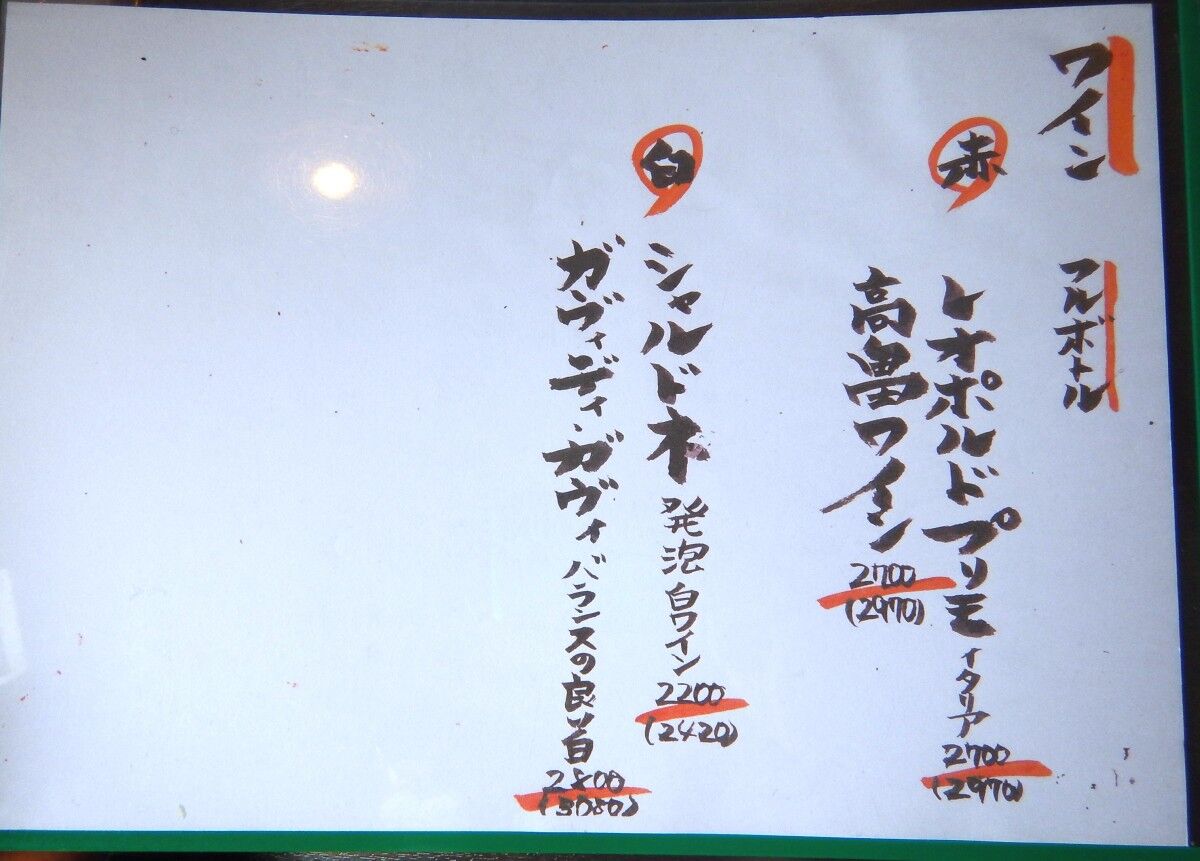 ワイン
フルボトル
赤
レオポルドプリモ イタリア
2700
(2970)
高畠ワイン
2700
(2970)
白
シャルドネ 発泡白ワイン
2200
(2420)
ガヴィディ・ガヴィ バランスの良い白
2800
(3080)